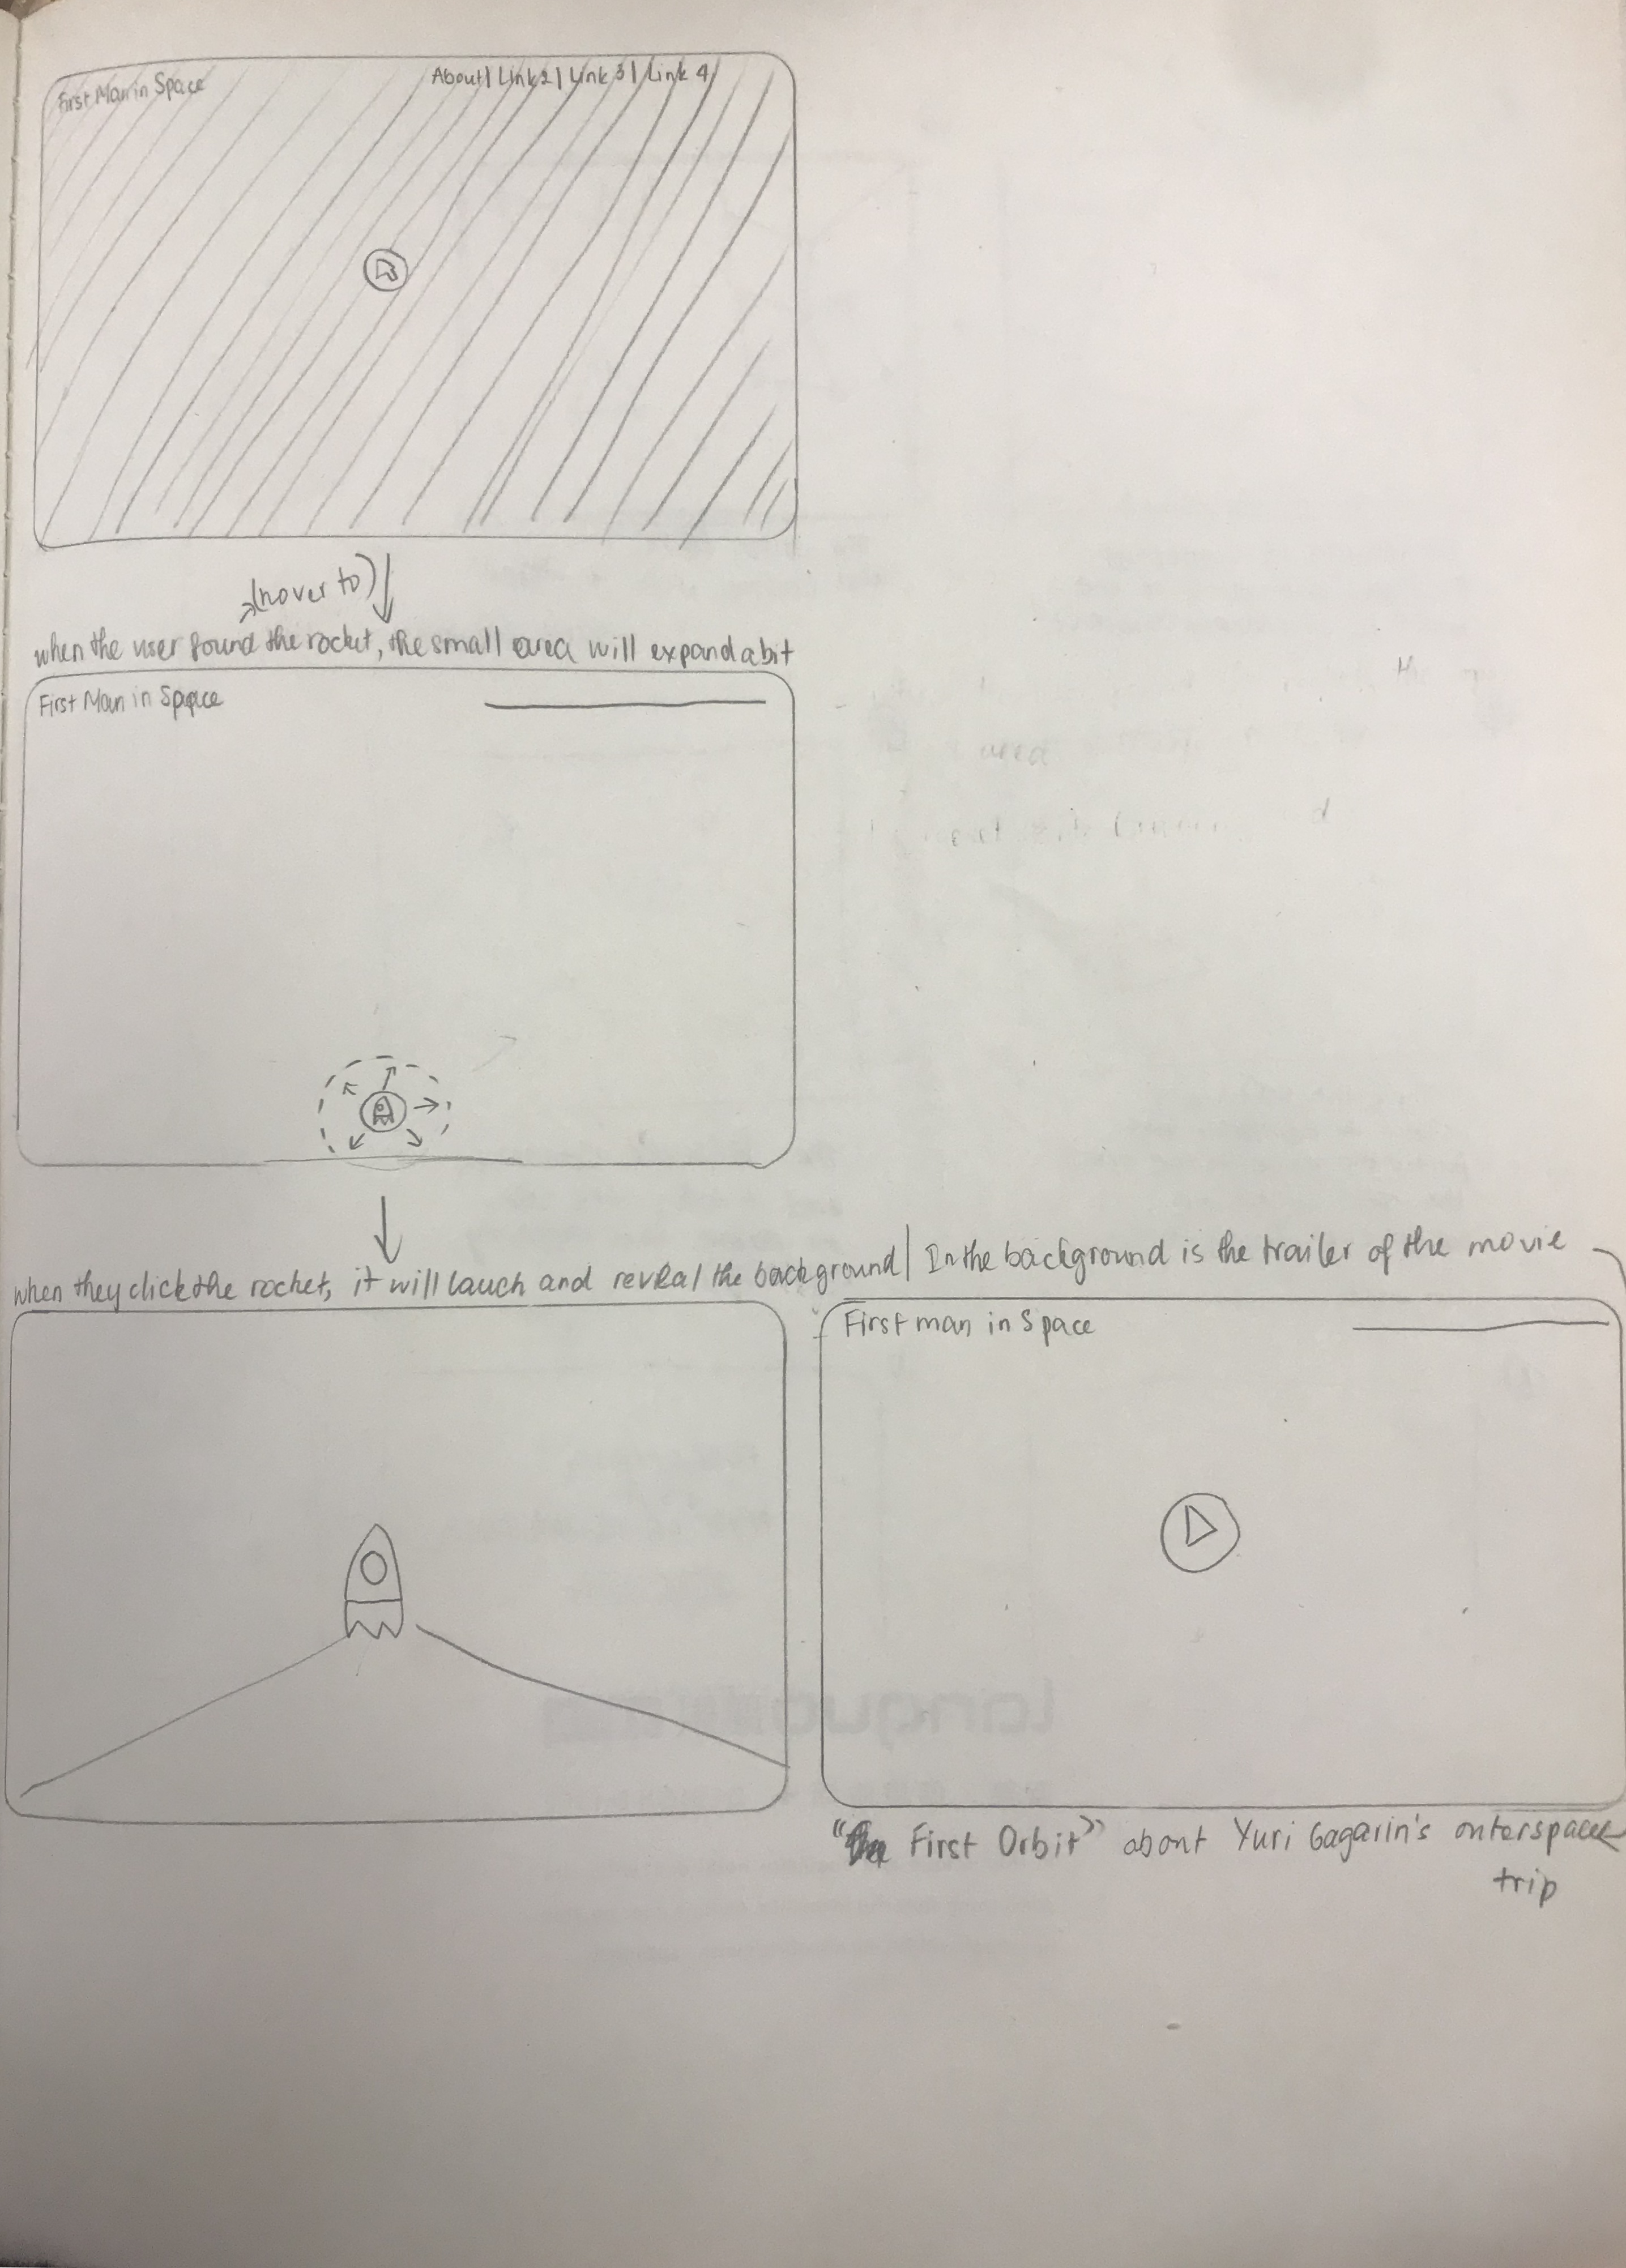 First Man in Space
About | Link 2 | Link 3 | Link 4
(hover to)
when the user found the rocket, the small area will expand a bit
First Man in Space
when they click the rocket, it will lauch and reveal the background | In the background is the trailer of the movie
First man in Space
"First Orbit" about Yuri Gagarin's outerspace
trip